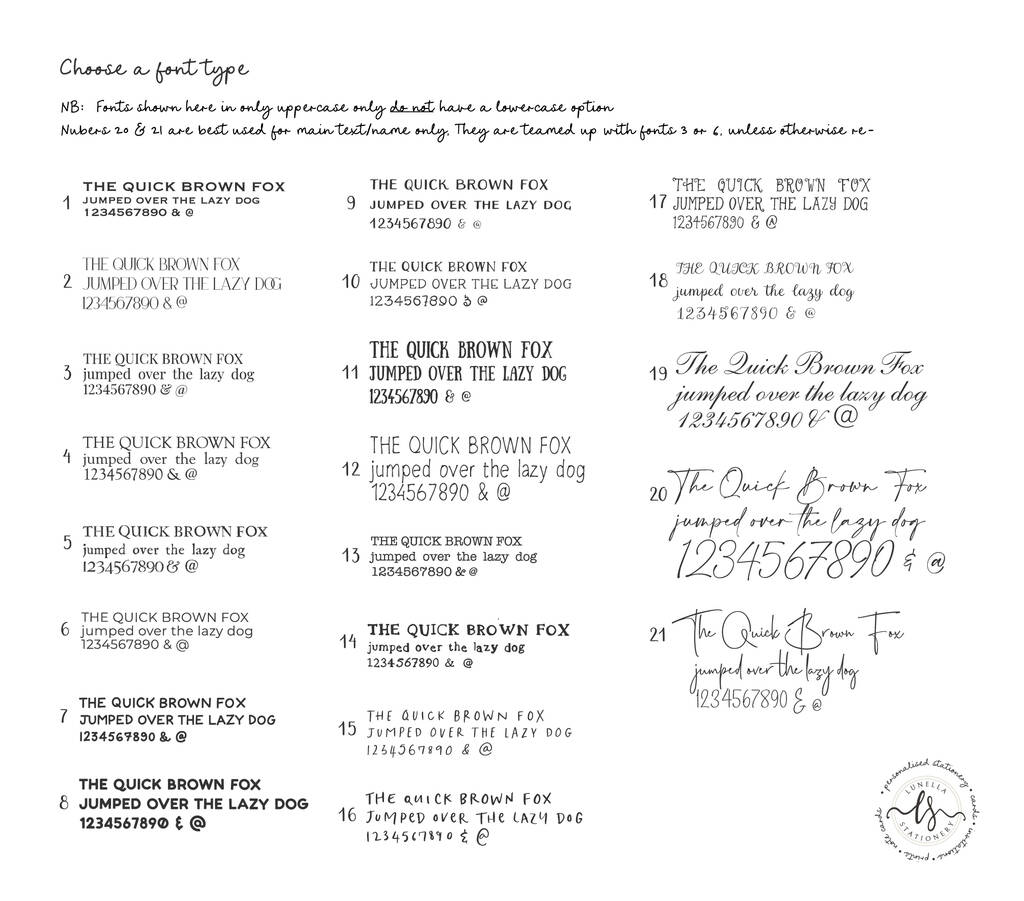 Choose a font type
NB: Fonts shown here in only uppercase only do not have a lowercase option
Nubers 20 & 21 are best used for main text/name only. They are teamed up with fonts 3 or 6, unless otherwise re-
1
THE QUICK BROWN FOX
JUMPED OVER THE LAZY DOG
1234567890 & @
2
THE QUICK BROWN FOX
JUMPED OVER THE LAZY DOG
1234567890 & @
3
THE QUICK BROWN FOX
jumped over the lazy dog
1234567890 & @
4
THE QUICK BROWN FOX
jumped over the lazy dog
1234567890 & @
5
THE QUICK BROWN FOX
jumped over the lazy dog
1234567890 & @
6
THE QUICK BROWN FOX
jumped over the lazy dog
1234567890 & @
7
THE QUICK BROWN FOX
JUMPED OVER THE LAZY DOG
1234567890 & @
8
THE QUICK BROWN FOX
JUMPED OVER THE LAZY DOG
1234567890 & @
9
THE QUICK BROWN FOX
JUMPED OVER THE LAZY DOG
1234567890 & @
10
THE QUICK BROWN FOX
JUMPED OVER THE LAZY DOG
1234567890 & @
11
THE QUICK BROWN FOX
JUMPED OVER THE LAZY DOG
1234567890 & @
12
THE QUICK BROWN FOX
jumped over the lazy dog
1234567890 & @
13
THE QUICK BROWN FOX
jumped over the lazy dog
1234567890 & @
14
THE QUICK BROWN FOX
jumped over the lazy dog
1234567890 & @
15
THE QUICK BROWN FOX
JUMPED OVER THE LAZY DOG
1234567890 & @
16
THE QUICK BROWN FOX
JUMPED OVER THE LAZY DOG
1234567890 & @
17
THE QUICK BROWN FOX
JUMPED OVER THE LAZY DOG
1234567890 & @
18
THE QUICK BROWN FOX
jumped over the lazy dog
1234567890 & @
19
The Quick Brown Fox
jumped over the lazy dog
1234567890 & @
20
The Quick Brown Fox
jumped over the lazy dog
1234567890 & @
21
The Quick Brown Fox
jumped over the lazy dog
1234567890 & @
• personalised stationery • cards • invitations • prints • note cards
LUNELLA
LS
STATIONERY